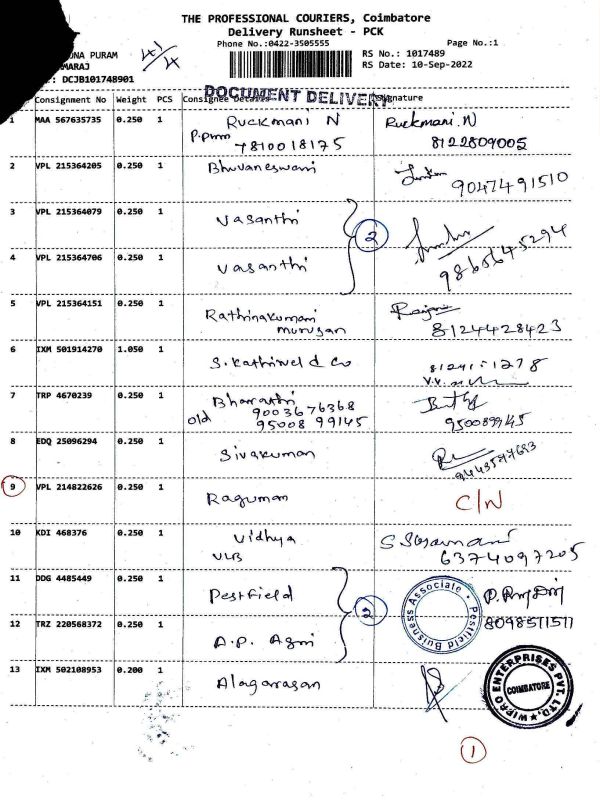 THE PROFESSIONAL COURIERS, Coimbatore
Delivery Runsheet - PCK
Phone No.:0422-3505555 Page No.:1
PURAM RS No.: 1017489
MARAJ RS Date: 10-Sep-2022
: DCJB101748901
DOCUMENT DELIVERY
Consignment No Weight PCS Consignee Details Signature
1 MAA 567635735 0.250 1 Ruckmani N Ruckmani.N
7810018175 8122809005
2 VPL 215364205 0.250 1 Bhuvaneswari
9047491510
3 VPL 215364079 0.250 1 Vasanthi
2
4 VPL 215364706 0.250 1 Vasanthi 9865645294
5 VPL 215364151 0.250 1 Rathinakumari
murugan 8124428423
6 IXM 501914270 1.050 1 S.Kathirvel & Co
7 TRP 4670239 0.250 1 Bharathi
9003676368
old 95008 99145 950089945
8 EDQ 25096294 0.250 1 Sivakumar
9443597693
9 VPL 214822626 0.250 1 Raguman C/N
10 KDI 468376 0.250 1 Vidhya
VLB 6374097205
11 DDG 4485449 0.250 1 Pestfield
2
Pestfield Buisness Associate
12 TRZ 220568372 0.250 1 A.P. Agri 8098511511
13 IXM 502108953 0.200 1 Alagarrasan
WIPRO ENTERPRISES PVT. LTD.
COIMBATORE
1